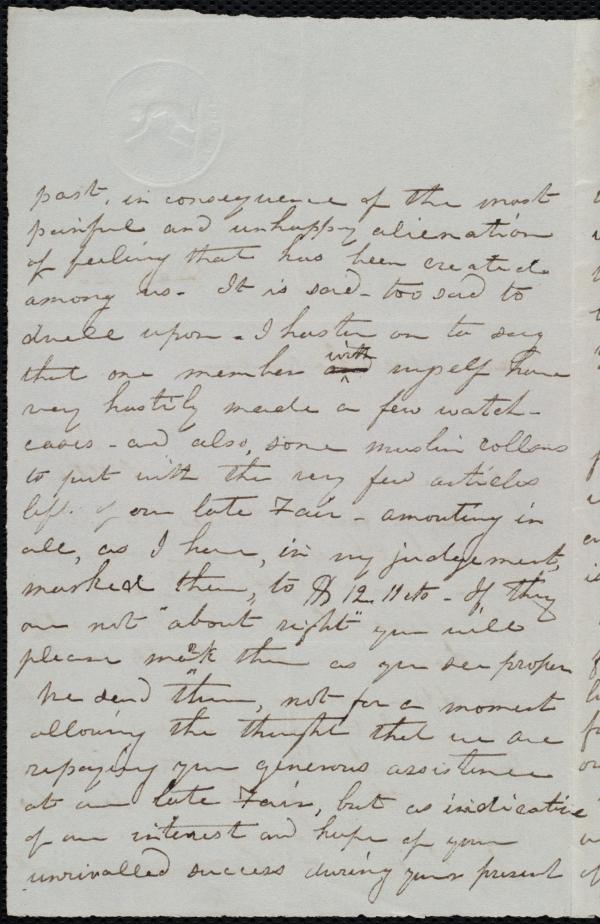 past, in consequence of the most
painful and unhappy alienation
of feeling that has been created
among us - It is sad - too sad to
dwell upon - I hasten on to say
that one member with myself have
very hastily made a few watch-
cases - and also, some muslin collars
to put with the very few articles
left of our late Fair - amouting in
all, as I have, in my judgement,
marked them, to $12.11 cts - If they
are not "about right" you will
please mark them as you see proper
We send them, not for a moment
allowing the thought that we are
repaying your generous assistance
at our late Fair, but as indicative
of our interest and hope of your
unrivalled success during your present